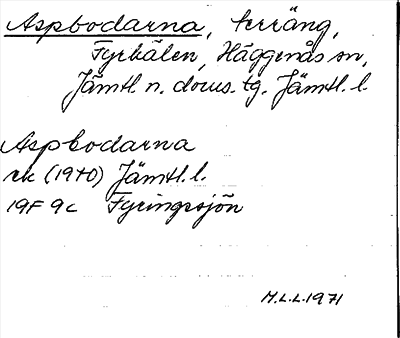 Aspbodarna, terräng,
Fyrkälen, Häggenås sn,
Jämtl. n. doms. tg. Jämtl. l.
Aspbodarna
rk (1970) Jämtl. l.
19F 9c Fyringesjön
M.L.L. 1971